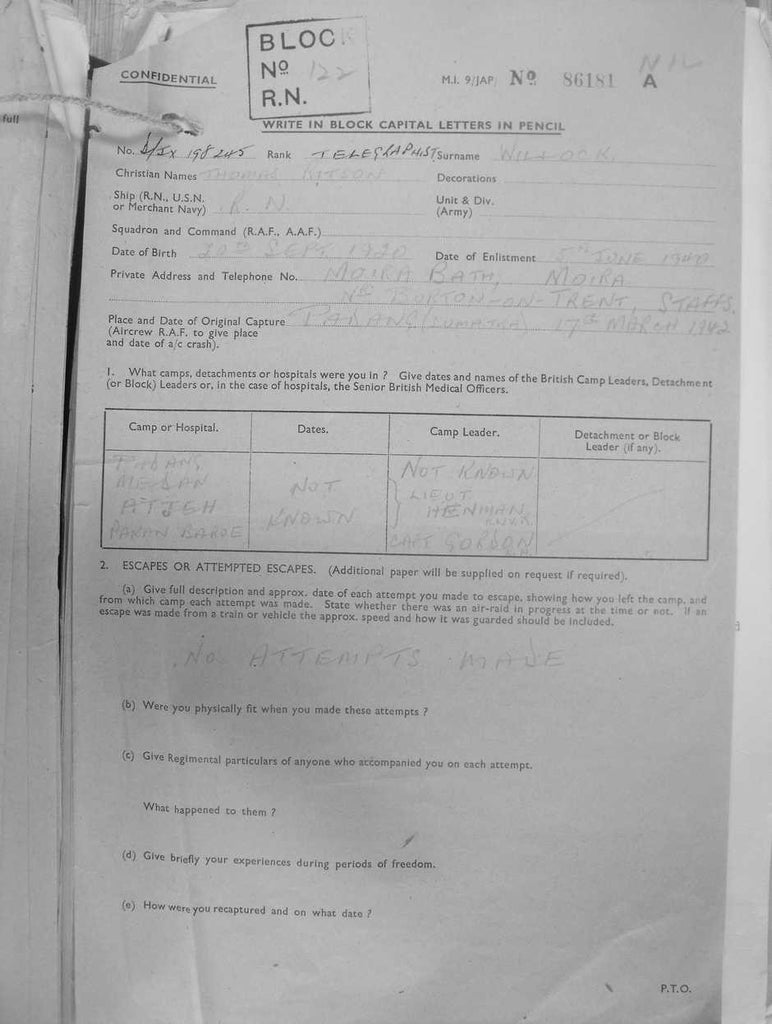 full
BLOCK
Nº 122
R.N.
NIL
CONFIDENTIAL
M.I. 9/JAP Nº 86181 A
WRITE IN BLOCK CAPITAL LETTERS IN PENCIL
No. 198245 Rank TELEGRAPHIST Surname WILLOCK
Christian Names THOMAS KITSON Decorations
Ship (R.N., U.S.N. or Merchant Navy) R.N. Unit & Div. (Army)
Squadron and Command (R.A.F., A.A.F.)
Date of Birth 20TH SEPT 1920 Date of Enlistment 5TH JUNE 1940
Private Address and Telephone No. MOIRA BATH, MOIRA
NR BURTON-ON-TRENT, STAFFS.
Place and Date of Original Capture PADANG (SUMATRA) 17TH MARCH 1942
(Aircrew R.A.F. to give place
and date of a/c crash).
1. What camps, detachments or hospitals were you in ? Give dates and names of the British Camp Leaders, Detachment
(or Block) Leaders or, in the case of hospitals, the Senior British Medical Officers.
Camp or Hospital. Dates. Camp Leader. Detachment or Block Leader (if any).
PADANG NOT KNOWN
MEDAN NOT LIEUT
ATJEH KNOWN HENMAN
PAKAN BAROE CAPT GORDON
2. ESCAPES OR ATTEMPTED ESCAPES. (Additional paper will be supplied on request if required).
(a) Give full description and approx. date of each attempt you made to escape, showing how you left the camp, and
from which camp each attempt was made. State whether there was an air-raid in progress at the time or not. If an
escape was made from a train or vehicle the approx. speed and how it was guarded should be included.
NO ATTEMPTS MADE
(b) Were you physically fit when you made these attempts ?
(c) Give Regimental particulars of anyone who accompanied you on each attempt.
What happened to them ?
(d) Give briefly your experiences during periods of freedom.
(e) How were you recaptured and on what date ?
P.T.O.